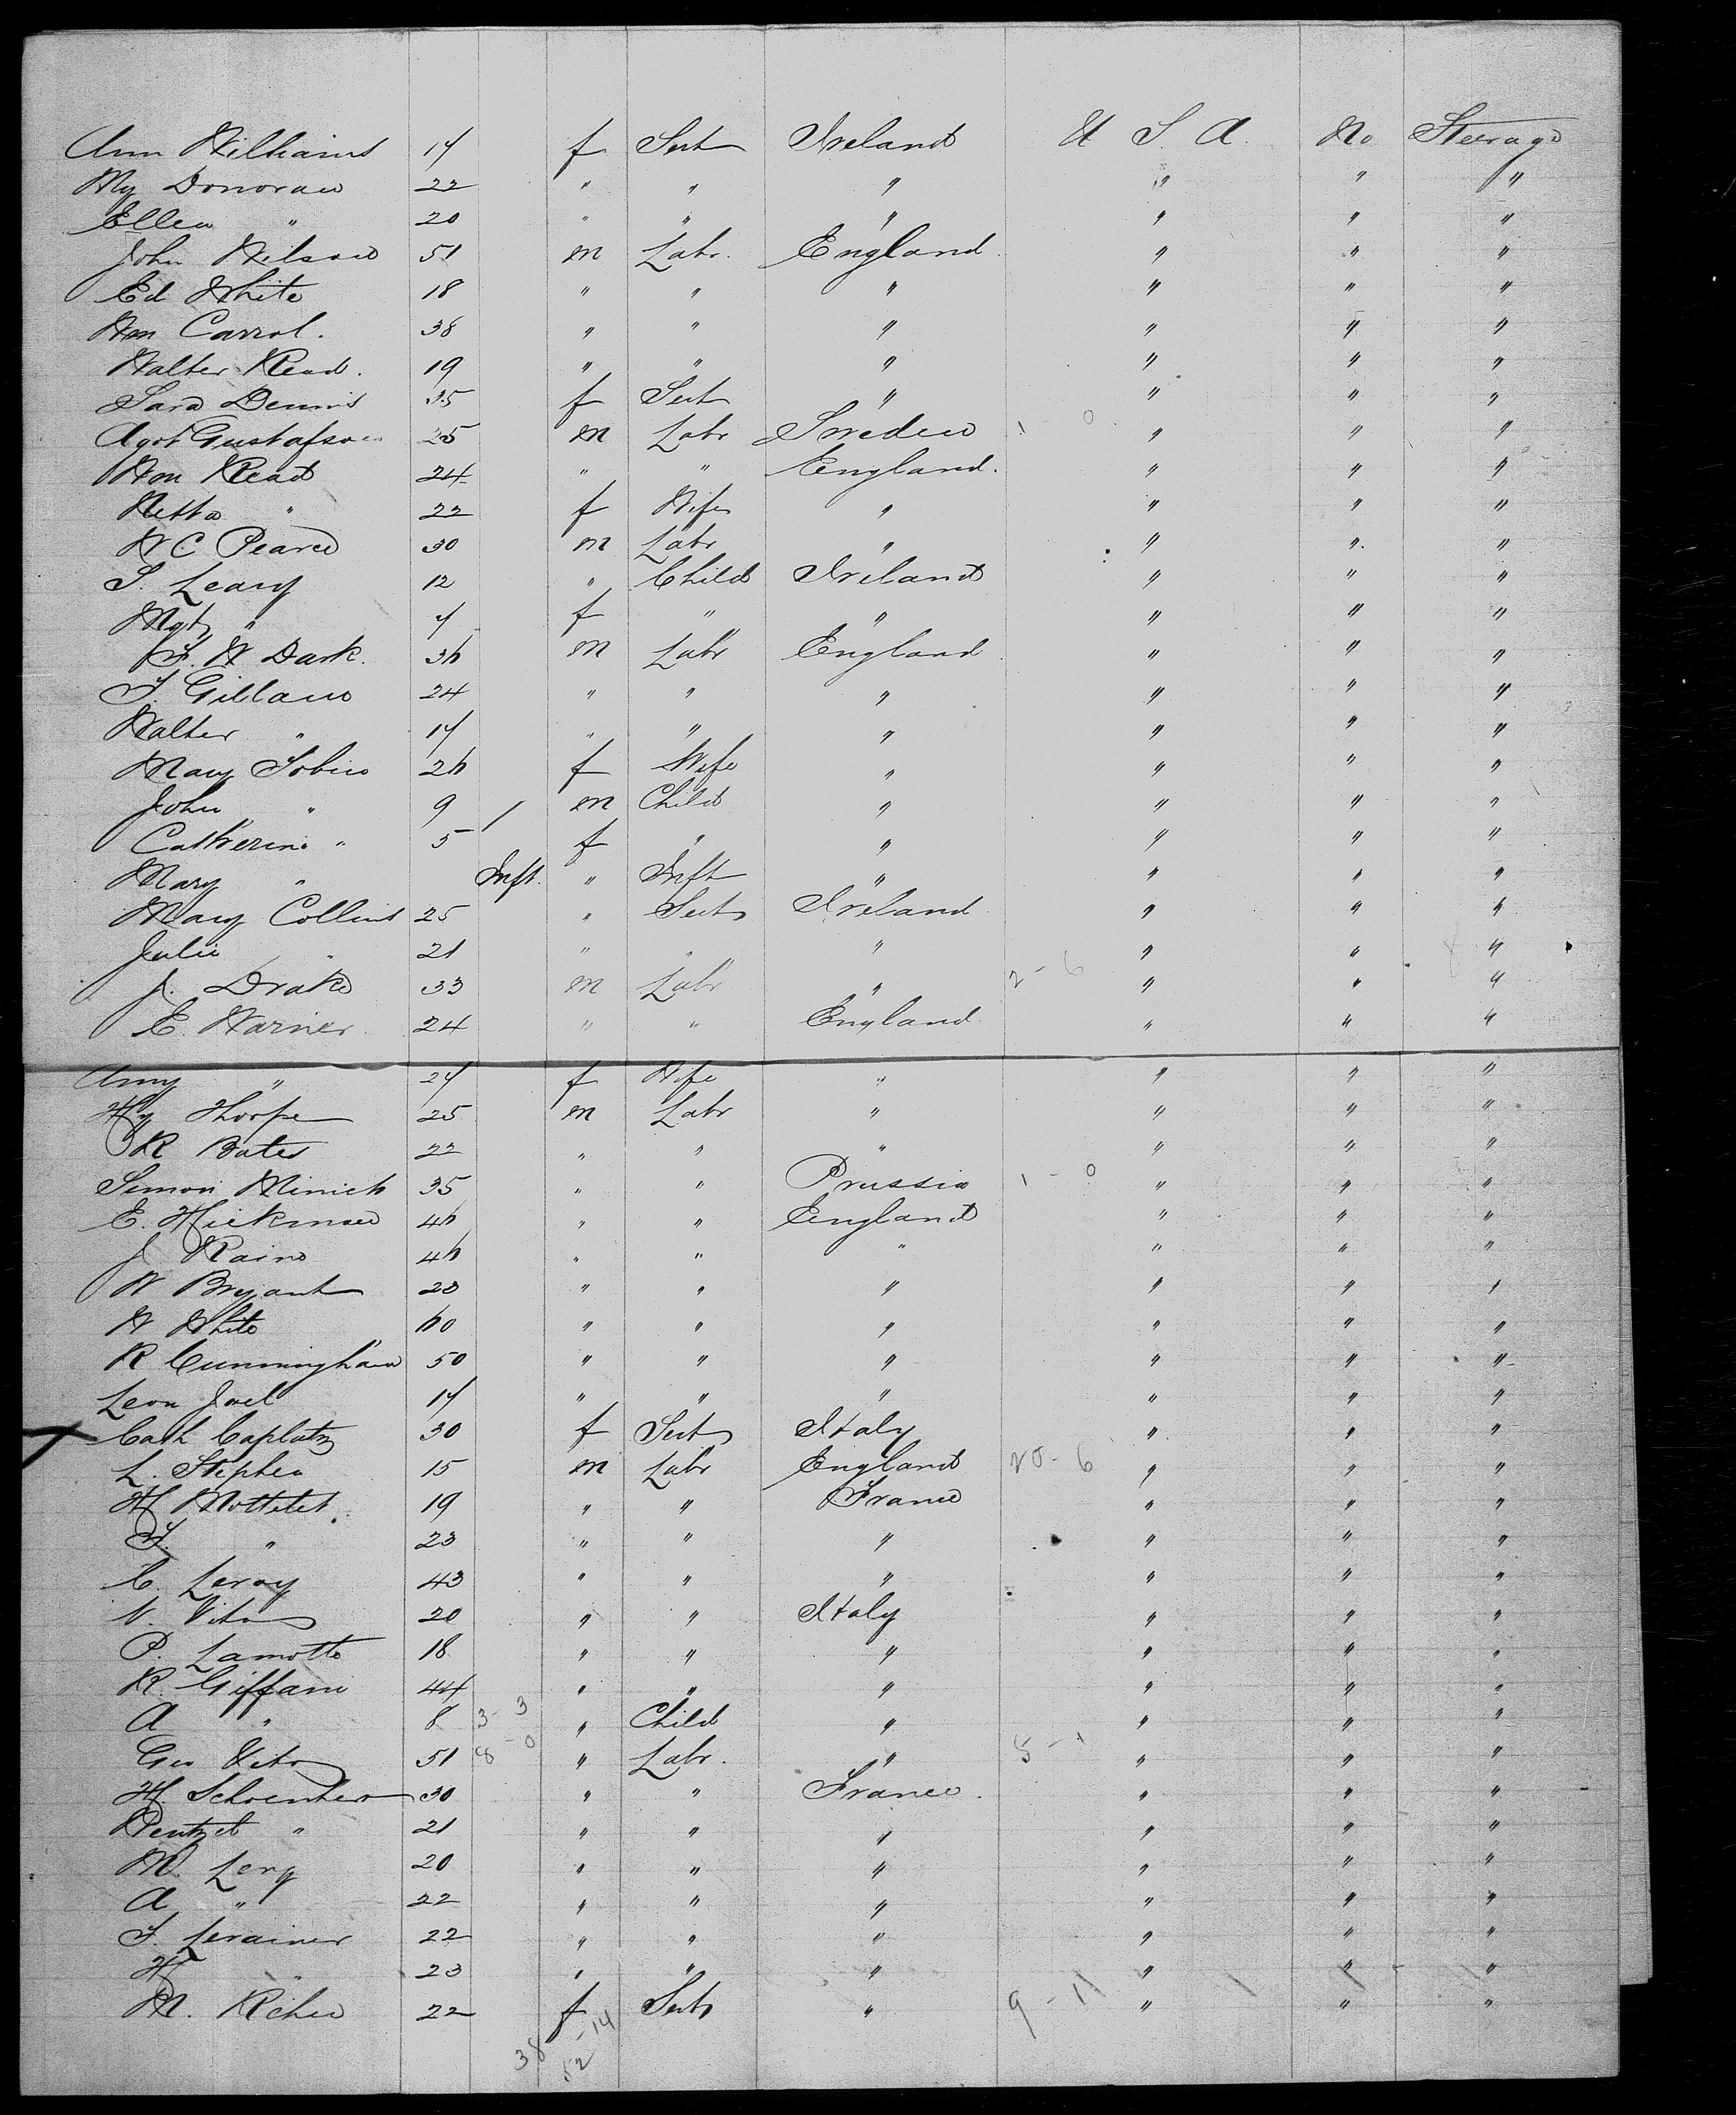 Ann Williams 17 f Sert Ireland U S. A. No Steerage
My Donovan 22 " " " " " "
Ellen " 20 " " " " " "
John Wilson 51 m Labr. England " " "
Ed White 18 " " " " " "
Wm Carrol. 38 " " " " " "
Walter Read. 19 " " " " " "
Sara Dennis 35 f Sert " " " "
Agot Gustafson 25 m Labr Sweden 1 0 " " "
Wm Read 24 " " England. " " "
Netta " 22 f Wife " " " "
W C Pearce 30 m Labr " " " "
S. Leary 12 " Child Ireland " " "
Mgt " 7 f " " " " "
F. W Dark. 36 m Labr England " " "
24 " " " " " "
Walter " 17 " " " " " "
Mary Tobin 26 f Wife " " " "
John " 9 / m Child " " " "
Catherine " 5 f " " " " "
Mary " Inft. " Inft " " " "
Mary Collins 25 " Sert Ireland " " "
Julie " 21 " " " " " "
J. Drake 33 m Labr " 2 - 6 " " "
E. Warner 24 " " England " " "
Amy " 27 f Wife " " " "
Hy Thorpe 25 m Labr " " " "
R Bates 22 " " " " " "
Simon 35 " " Prussia 1 - 0 " " "
E. Hickman 46 " " England " " "
J Rains 46 " " " " " "
W Bryant 23 " " " " " "
W White 60 " " " " " "
R Cunningham 50 " " " " " "
Leon Joel 17 " " " " " "
Cath 30 f Sert Italy " " "
L. Stephen 15 m Labr England 20 - 6 " " "
H 19 " " France " " "
" 23 " " " " " "
C. Leroy 43 " " " " " "
V. Vito 20 " " Italy " " "
P. Lamotte 18 " " " " " "
R. Giffani 44 " " " " " "
A " 8 3 - 3 " Child " " " "
Geo Vito 51 8 - 0 " Labr. " 5 - 1 " " "
H 30 " " France. " " "
" 21 " " " " " "
M. Levy 20 " " " " " "
A " 22 " " " " " "
22 " " " " " "
H " 23 " " " " " "
M. 22 f Sert " 9 - 11 " " "
38 52 - 14